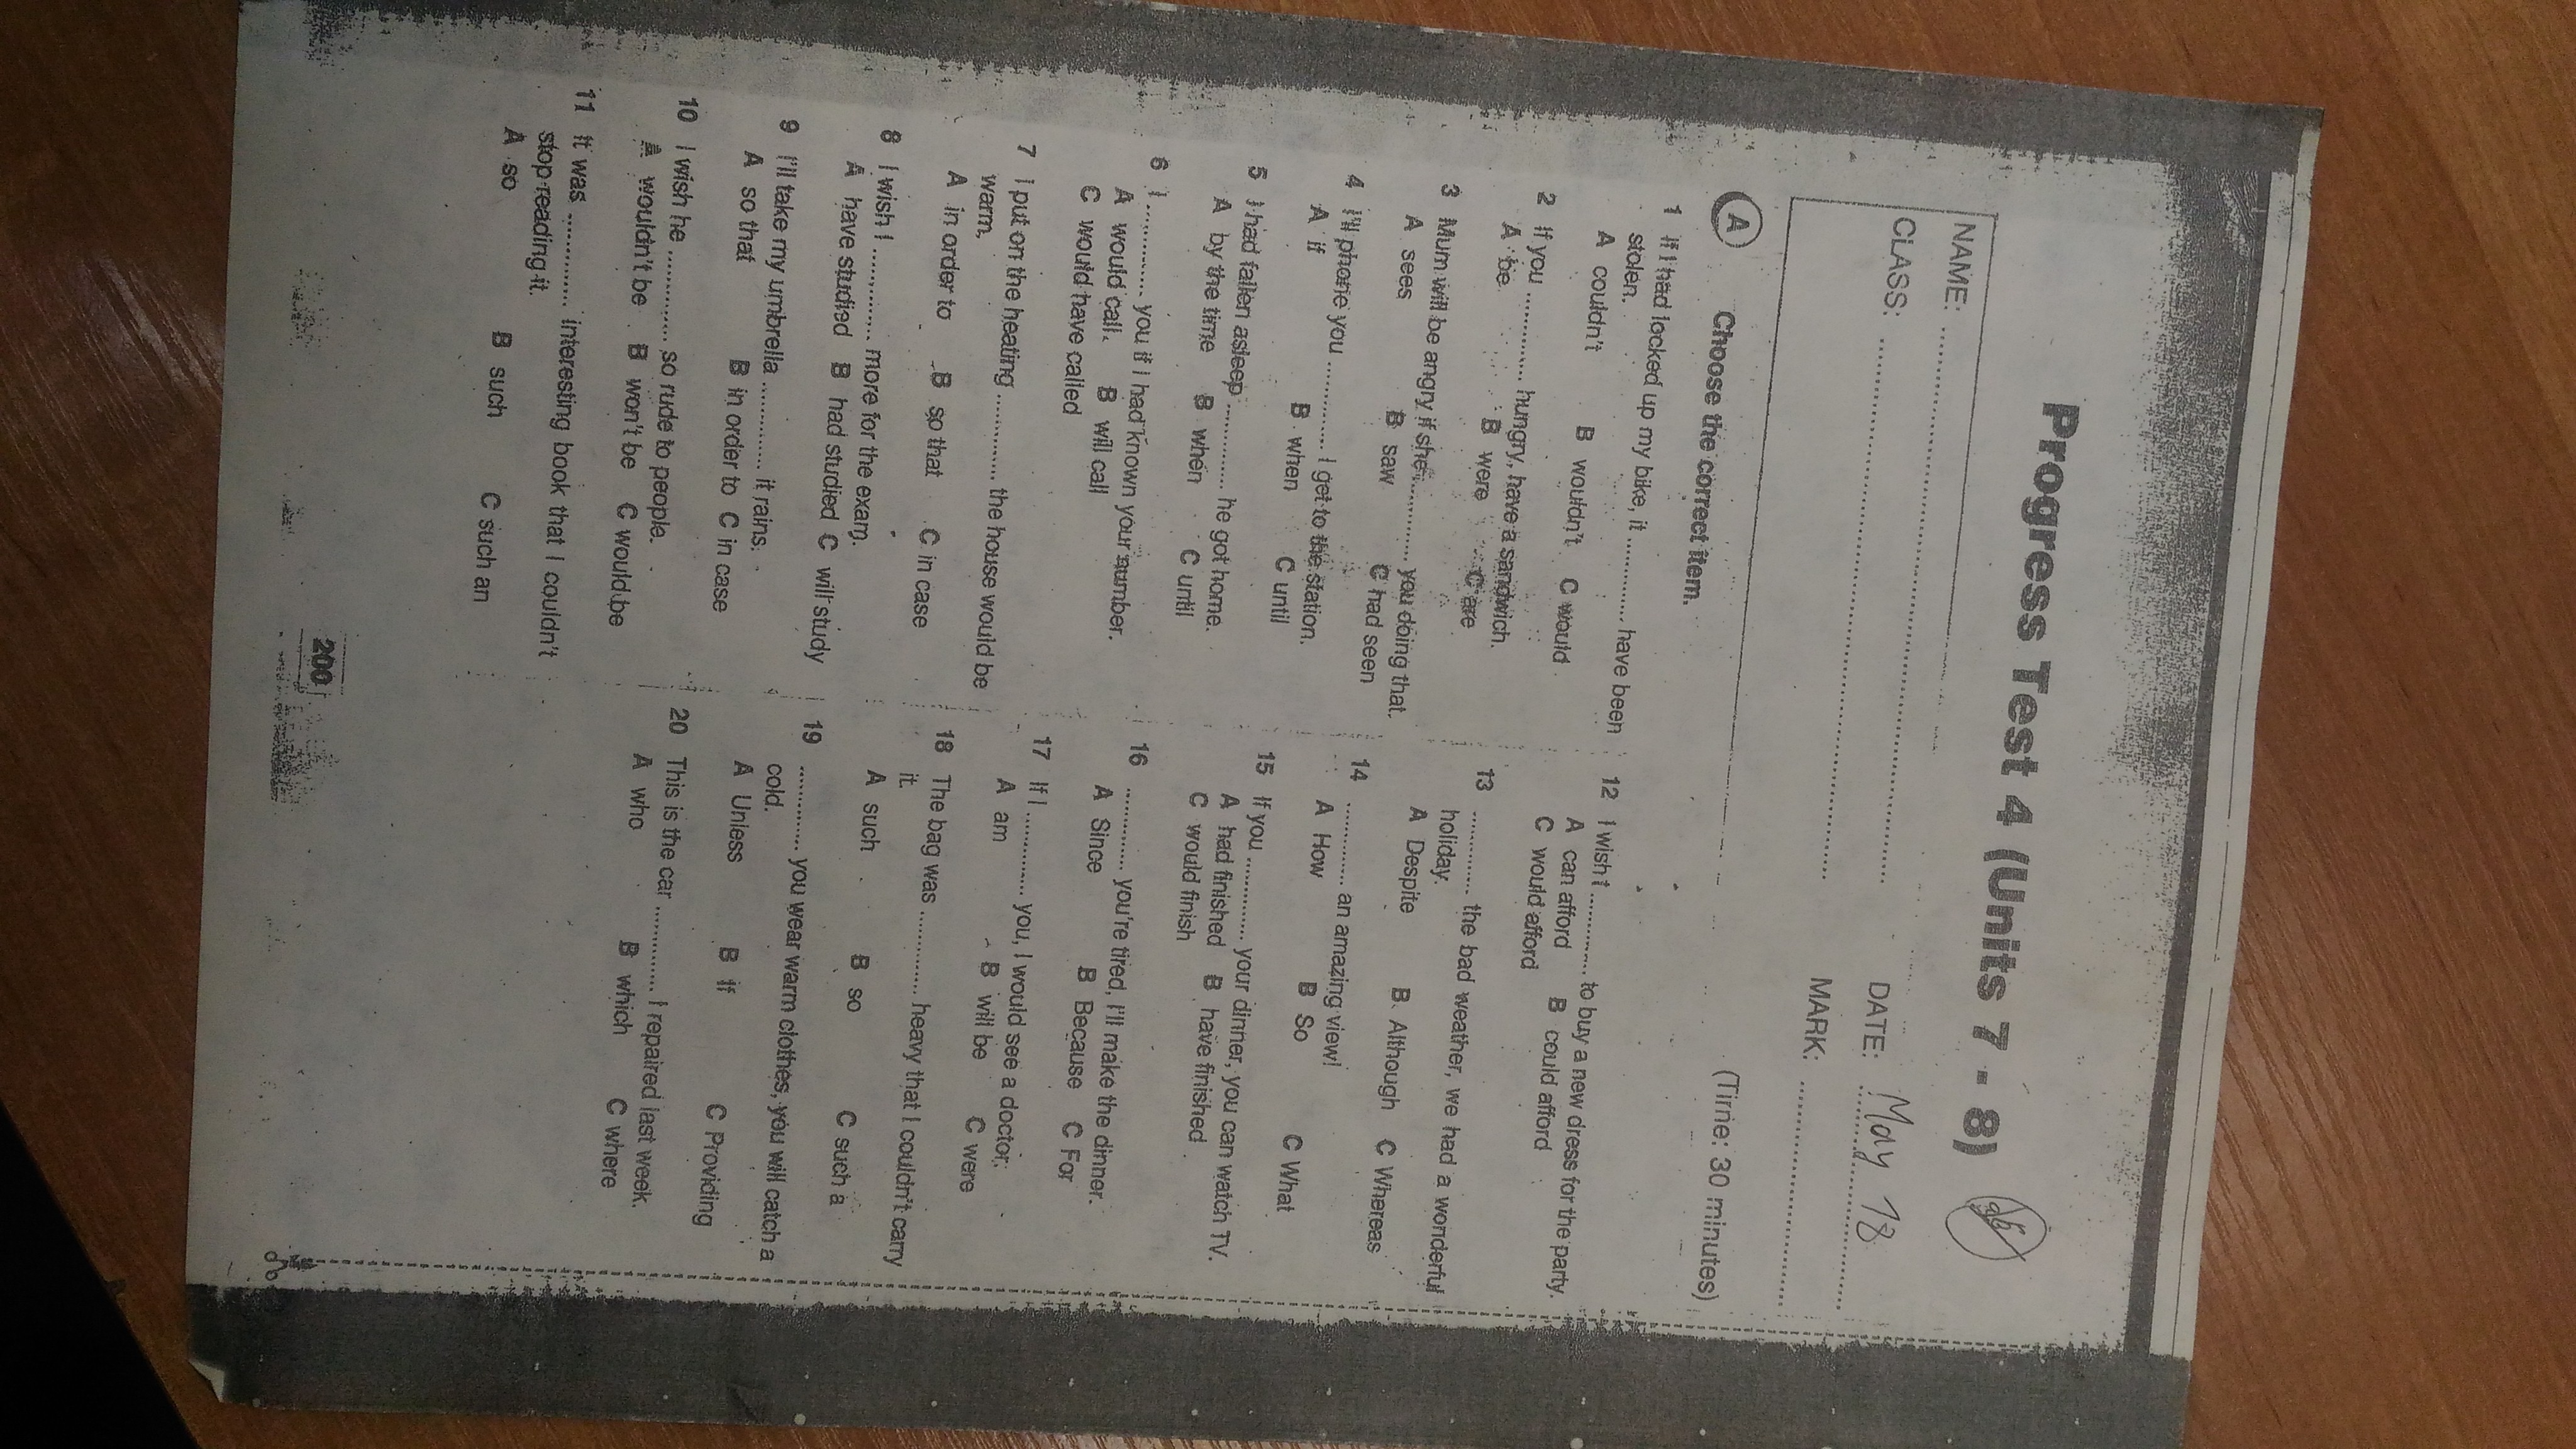 Progress Test 4 (Units 7 - 8)
NAME: ............ DATE: May 18
CLASS: ............ MARK: ............
A Choose the correct item. (Time: 30 minutes)
1 If I had locked up my bike, it ............ have been
stolen.
A couldn't B wouldn't C would
2 If you ............ hungry, have a sandwich.
A be B were C are
3 Mum will be angry if she ............ you doing that.
A sees B saw C had seen
4 I'll phone you ............ I get to the station.
A if B when C until
5 I had fallen asleep ............ he got home.
A by the time B when C until
6 I ............ you if I had known your number.
A would call B will call
C would have called
7 I put on the heating ............ the house would be
warm.
A in order to B so that C in case
8 I wish I ............ more for the exam.
A have studied B had studied C will study
9 I'll take my umbrella ............ it rains.
A so that B in order to C in case
10 I wish he ............ so rude to people.
A wouldn't be B won't be C would be
11 It was ............ interesting book that I couldn't
stop reading it.
A so B such C such an
12 I wish I ............ to buy a new dress for the party.
A can afford B could afford
C would afford
13 ............ the bad weather, we had a wonderful
holiday.
A Despite B Although C Whereas
14 ............ an amazing view!
A How B So C What
15 If you ............ your dinner, you can watch TV.
A had finished B have finished
C would finish
16 ............ you're tired, I'll make the dinner.
A Since B Because C For
17 If I ............ you, I would see a doctor.
A am B will be C were
18 The bag was ............ heavy that I couldn't carry
it.
A such B so C such a
19 ............ you wear warm clothes, you will catch a
cold.
A Unless B If C Providing
20 This is the car ............ I repaired last week.
A who B which C where
200